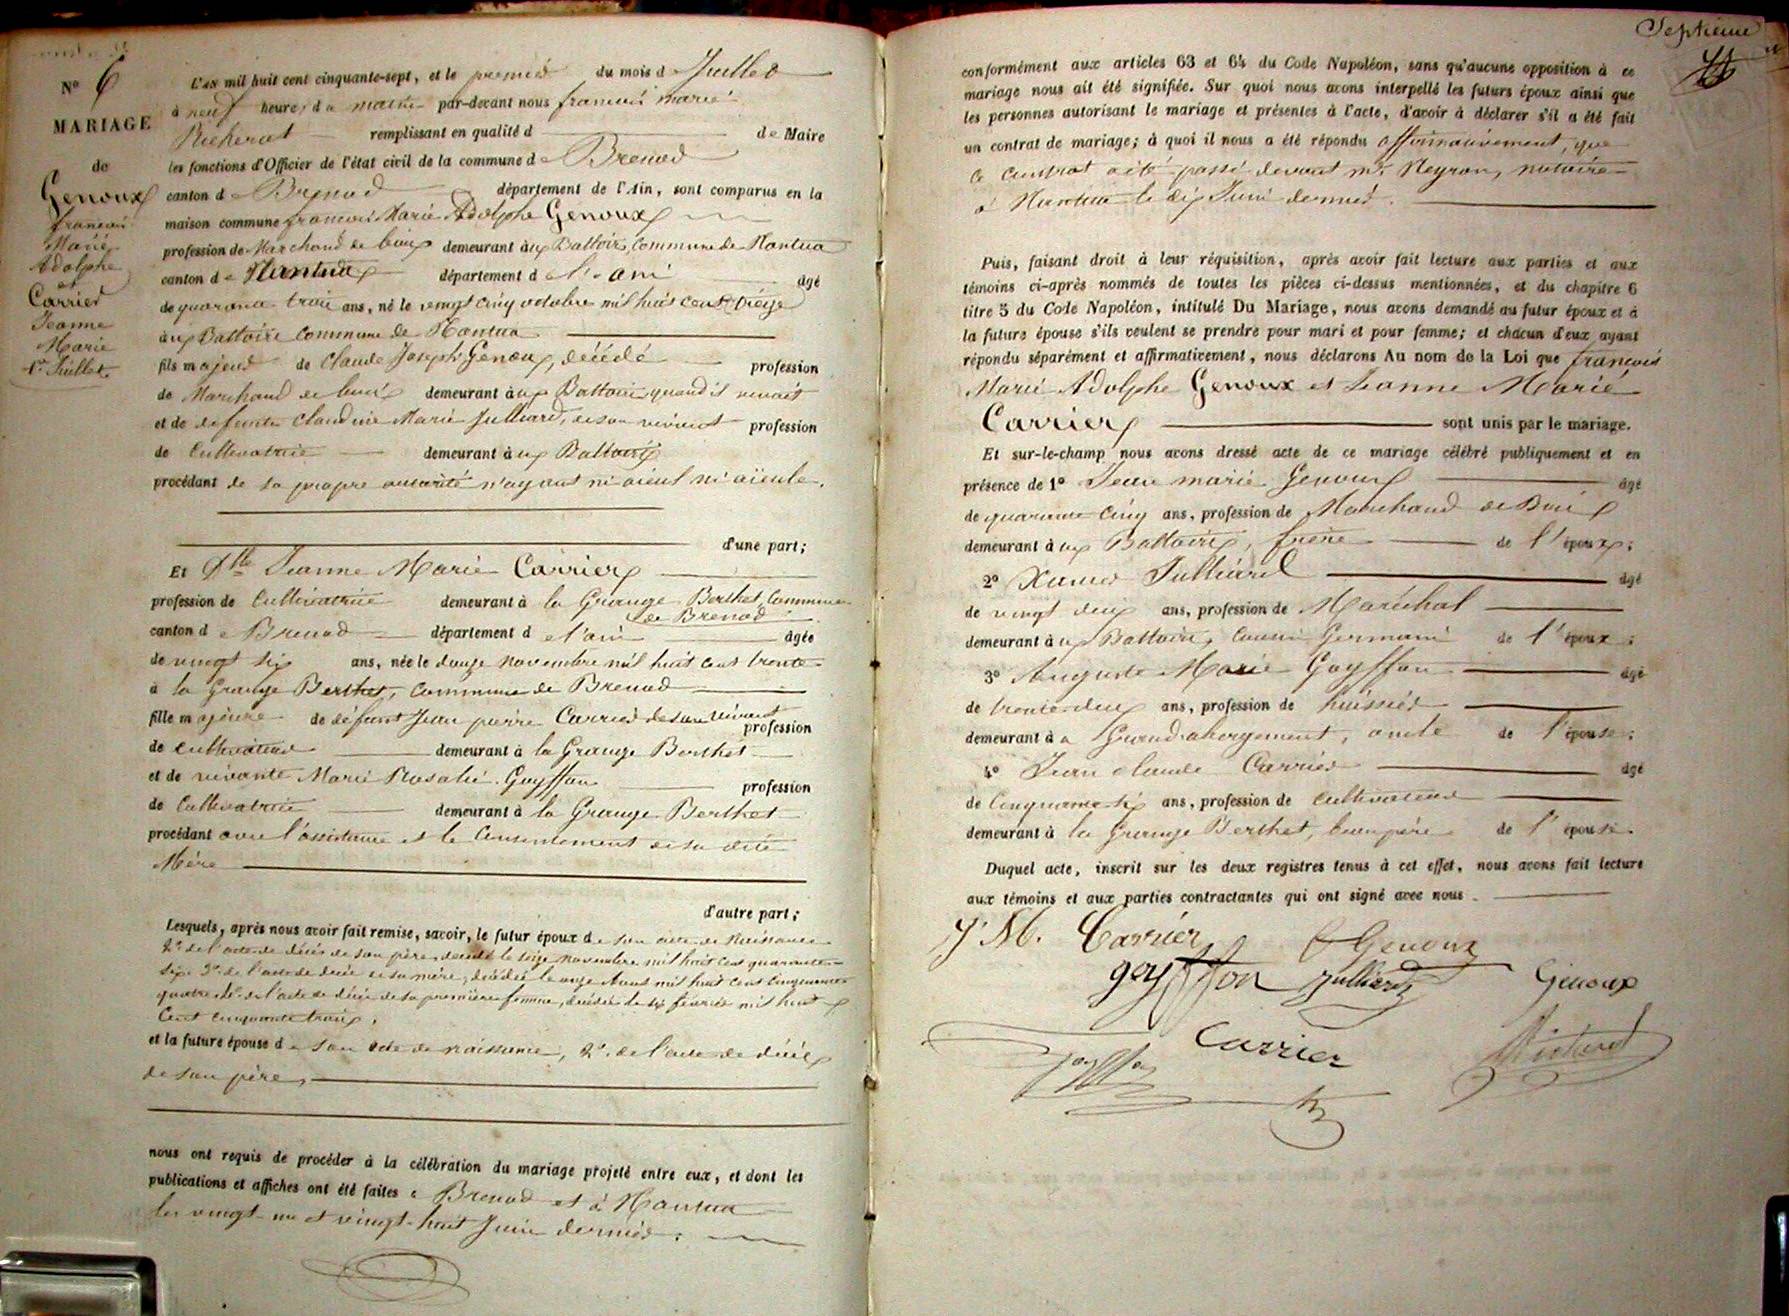 N° 6
MARIAGE
de
Genoux
françois
Marie
Adolphe
et
Carrier
Jeanne
Marie
1er Juillet
L'an mil huit cent cinquante-sept, et le premier du mois de Juillet
à neuf heures du matin par-devant nous françois marie
remplissant en qualité d de Maire
les fonctions d'Officier de l'état civil de la commune de Brenod
canton de Brenod département de l'Ain, sont comparus en la
maison commune francois Marie Adolphe Genoux
profession de Marchand de bois demeurant aux Battoirs, commune de Nantua
canton de Nantua département de l'ain âgé
de quarante trois ans, né le vingt cinq octobre mil huit cent treize
aux Battoirs commune de Nantua
fils majeur de Claude Joseph Genoux, décédé profession
de Marchand de bois demeurant aux Battoirs quand il vivait
et de defunte Claudine Marie Julliard, de son vivant profession
de Cultivatrice demeurant aux Battoirs
procédant de sa propre autorité n'ayant ni aieul ni aïeule.
d'une part;
Et Dlle Jeanne Marie Carrier
profession de Cultivatrice demeurant à la Grange Berthet Commune
de Brenod
canton de Brenod département de l'ain âgée
de vingt six ans, née le douze novembre mil huit cent trente
à la Grange Berthet, commune de Brenod
fille majeure de défunt Jean pierre Carrier de son vivant
profession
de cultivateur demeurant à la Grange Berthet
et de vivante Marie Rosalie Goyffon profession
de Cultivatrice demeurant à la Grange Berthet
procédant avec l'assistance et le Consentement de sa dite
Mère
d'autre part;
Lesquels, après nous avoir fait remise, savoir, le futur époux de son acte de Naissance
2° de l'acte de décès de son père, décédé le seize novembre mil huit cent quarante
six 3° de l'acte de décès de sa mère, décédée le onze Aout mil huit cent cinquante
quatre 4° de l'acte de décès de sa première femme, décédée le six février mil huit
Cent cinquante trois,
et la future épouse de son acte de naissance, 2° de l'acte de décès
de son père,
nous ont requis de procéder à la célébration du mariage projeté entre eux, et dont les
publications et affiches ont été faites à Brenod et à Nantua
les vingt-un et vingt-huit Juin dernier.
Septième
conformément aux articles 63 et 64 du Code Napoléon, sans qu'aucune opposition à ce
mariage nous ait été signifiée. Sur quoi nous avons interpellé les futurs époux ainsi que
les personnes autorisant le mariage et présentes à l'acte, d'avoir à déclarer s'il a été fait
un contrat de mariage; à quoi il nous a été répondu affirmativement, que
ce contrat a été passé devant Me Neyron, notaire
à Nantua le dix Juin dernier.
Puis, faisant droit à leur réquisition, après avoir fait lecture aux parties et aux
témoins ci-après nommés de toutes les pièces ci-dessus mentionnées, et du chapitre 6
titre 5 du Code Napoléon, intitulé Du Mariage, nous avons demandé au futur époux et à
la future épouse s'ils veulent se prendre pour mari et pour femme; et chacun d'eux ayant
répondu séparément et affirmativement, nous déclarons Au nom de la Loi que francois
Marie Adolphe Genoux et Jeanne Marie
Carrier sont unis par le mariage.
Et sur-le-champ nous avons dressé acte de ce mariage célébré publiquement et en
présence de 1° Jean marie Genoux âgé
de quarante cinq ans, profession de Marchand de Bois
demeurant aux Battoirs, frère de l'époux;
2° Xavier Julliard âgé
de vingt deux ans, profession de Maréchal
demeurant aux Battoirs, Cousin Germain de l'époux;
3° Auguste Marie Goyffon âgé
de trente-deux ans, profession de huissier
demeurant à Grand abergement, oncle de l'épouse;
4° Jean claude Carrier âgé
de Cinquante six ans, profession de cultivateur
demeurant à la Grange Berthet, beau père de l'épouse.
Duquel acte, inscrit sur les deux registres tenus à cet effet, nous avons fait lecture
aux témoins et aux parties contractantes qui ont signé avec nous.
J. M. Carrier Genoux
goyffon Julliard Genoux
Carrier